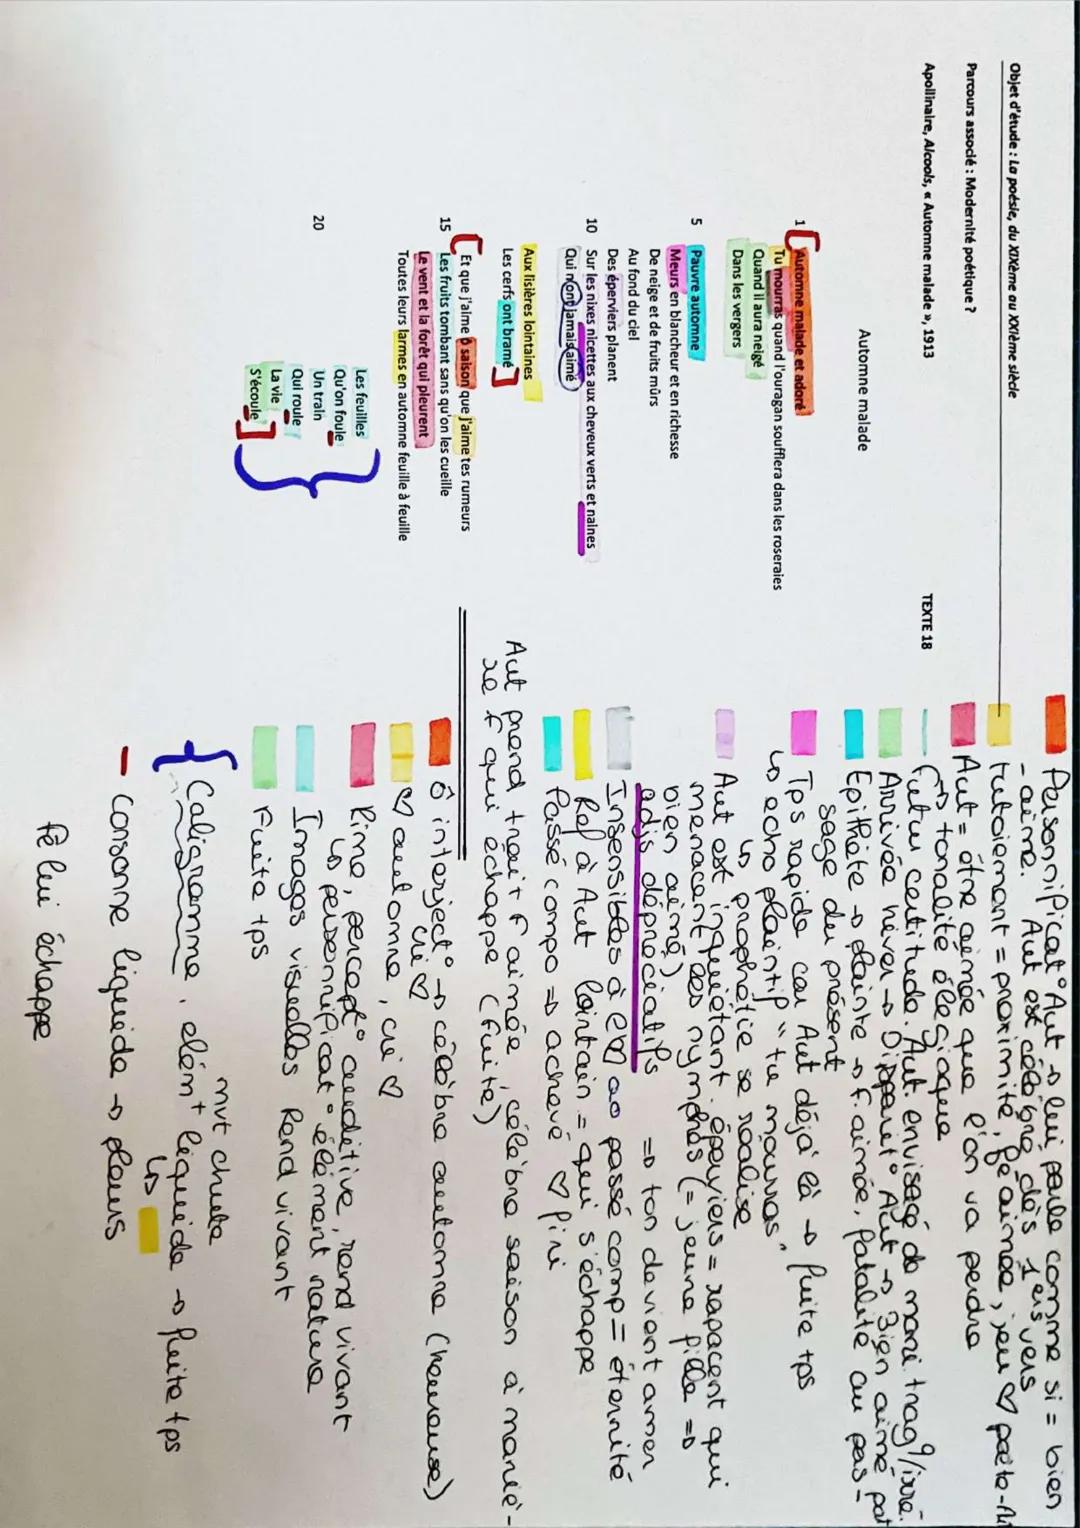 Objet d'étude : La poésie, du XIXème au XXIème siècle
Parcours associé : Modernité poétique ?
Apollinaire, Alcools, « Automne malade », 1913
TEXTE 18
Automne malade
1 Automne malade et adoré
Tu mourras quand l'ouragan soufflera dans les roseraies
Quand il aura neigé
Dans les vergers
5 Pauvre automne
Meurs en blancheur et en richesse
De neige et de fruits mûrs
Au fond du ciel
Des éperviers planent
10 Sur les nixes nicettes aux cheveux verts et naines
Qui n'ont jamais aimé
Aux lisières lointaines
Les cerfs ont bramé
Et que j'aime ô saison que j'aime tes rumeurs
15 Les fruits tombant sans qu'on les cueille
Le vent et la forêt qui pleurent
Toutes leurs larmes en automne feuille à feuille
Les feuilles
Qu'on foule
20 Un train
Qui roule
La vie
S'écoule
Personnificat° Aut → lui parle comme si = bien
-aimé. Aut est célébré dès 1ers vers
tutoiement = proximité, fe aimée, jeu ♡ poète-Aut
Aut = être aimée que l'on va perdre
Futur certitude. Aut. envisagé de mani trag9/irré.
↳ tonalité élégiaque
Arrivée hiver → Disparit° Aut → Bien aimé part
Epithète → plainte → f. aimée, fatalité au pas-
sage du présent
Tps rapide car Aut déjà là → fuite tps
↳ echo plaintif "tu mourras"
Aut est inquiétant. éperviers = rapacent qui
menacent les nymphes (= jeune fille =
bien aimé)
↳ prophétie se réalise
adjs dépréciatifs ⇒ ton devient amer
Insensibles à l'♡ passé comp = éternité
Ref à Aut lointain = qui s'échappe
Passé compo ⇒ achevé ♡ fini
Aut prend trait f aimée, célèbre saison à maniè-
re f qui échappe (fuite)
Ô interject° → célèbre automne (heureuse)
cri ♡
♡ automne, cri ♡
Rime, percept° auditive, rend vivant
↳ personnificat° élément nature
Images visuelles Rend vivant
Fuite tps
mvt chute
Caligramme, élém+ liquide → fuite tps
↳
- Consonne liquide → pleurs
fe lui échappe